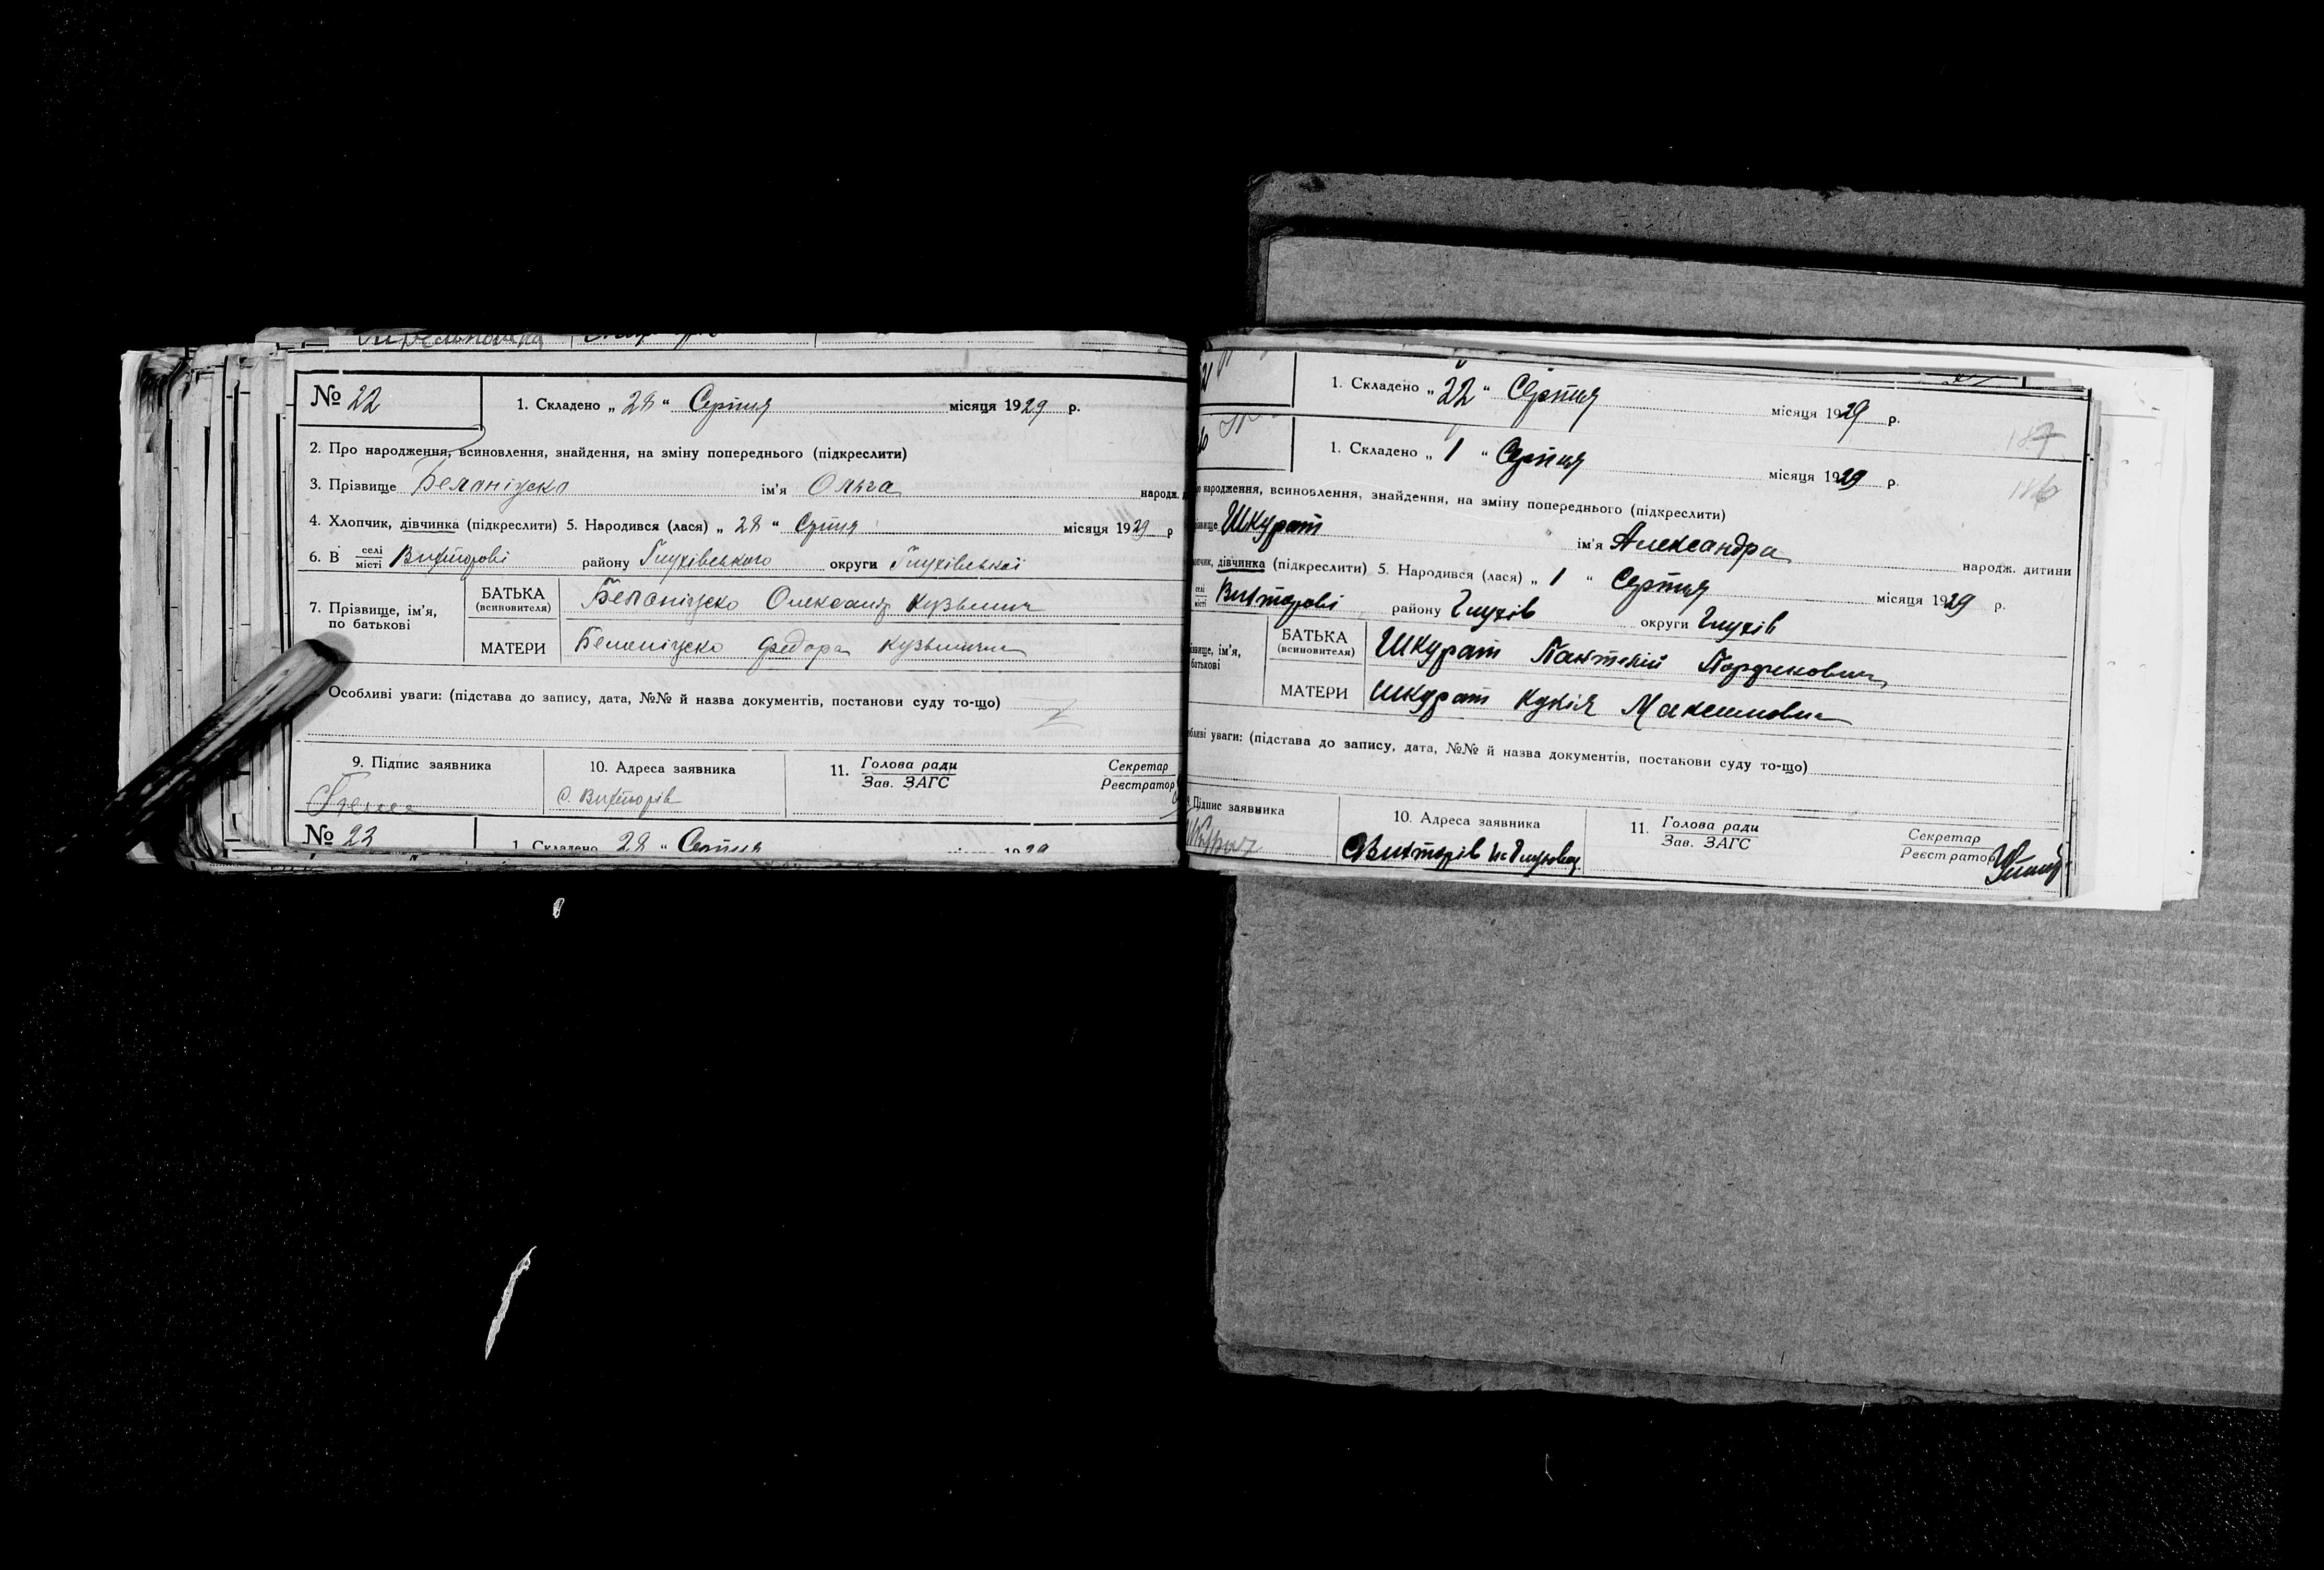 № 22
1. Складено „ 28 “ Серпня місяця 1929 р.
2. Про народження, всиновлення, знайдення, на зміну попереднього (підкреслити)
3. Прізвище ім'я Ольга народж.
4. Хлопчик, дівчинка (підкреслити) 5. Народився (лася) „ 28 “ Серпня місяця 1929 р
6. В селі місті Вікторові району Глухівського округи Глухівської
7. Прізвище, ім'я, по батькові
БАТЬКА (всиновителя) Олександр Кузьмич
МАТЕРИ Федора Кузьминична
Особливі уваги: (підстава до запису, дата, №№ й назва документів, постанови суду то-що)
9. Підпис заявника
10. Адреса заявника
с. Вікторів
11. Голова ради Зав. ЗАГС
Секретар Реєстратор
№ 23
1. Складено 28 “ Серпня 1929
1. Складено „ 22 “ Серпня місяця 1929 р.
187
1. Складено „ 1 “ Серпня місяця 1929 р.
186
народження, всиновлення, знайдення, на зміну попереднього (підкреслити)
Шкурат ім'я Александра народж. дитини
дівчинка (підкреслити) 5. Народився (лася) „ 1 “ Серпня місяця 1929 р.
селі місті Вікторові району Глухів округи Глухів
ім'я, батькові
БАТЬКА (всиновителя) Шкурат Пантелій
МАТЕРИ Шкурат Максимовна
уваги: (підстава до запису, дата, №№ й назва документів, постанови суду то-що)
Підпис заявника
10. Адреса заявника
с Вікторів
11. Голова ради Зав. ЗАГС
Секретар Реєстратор